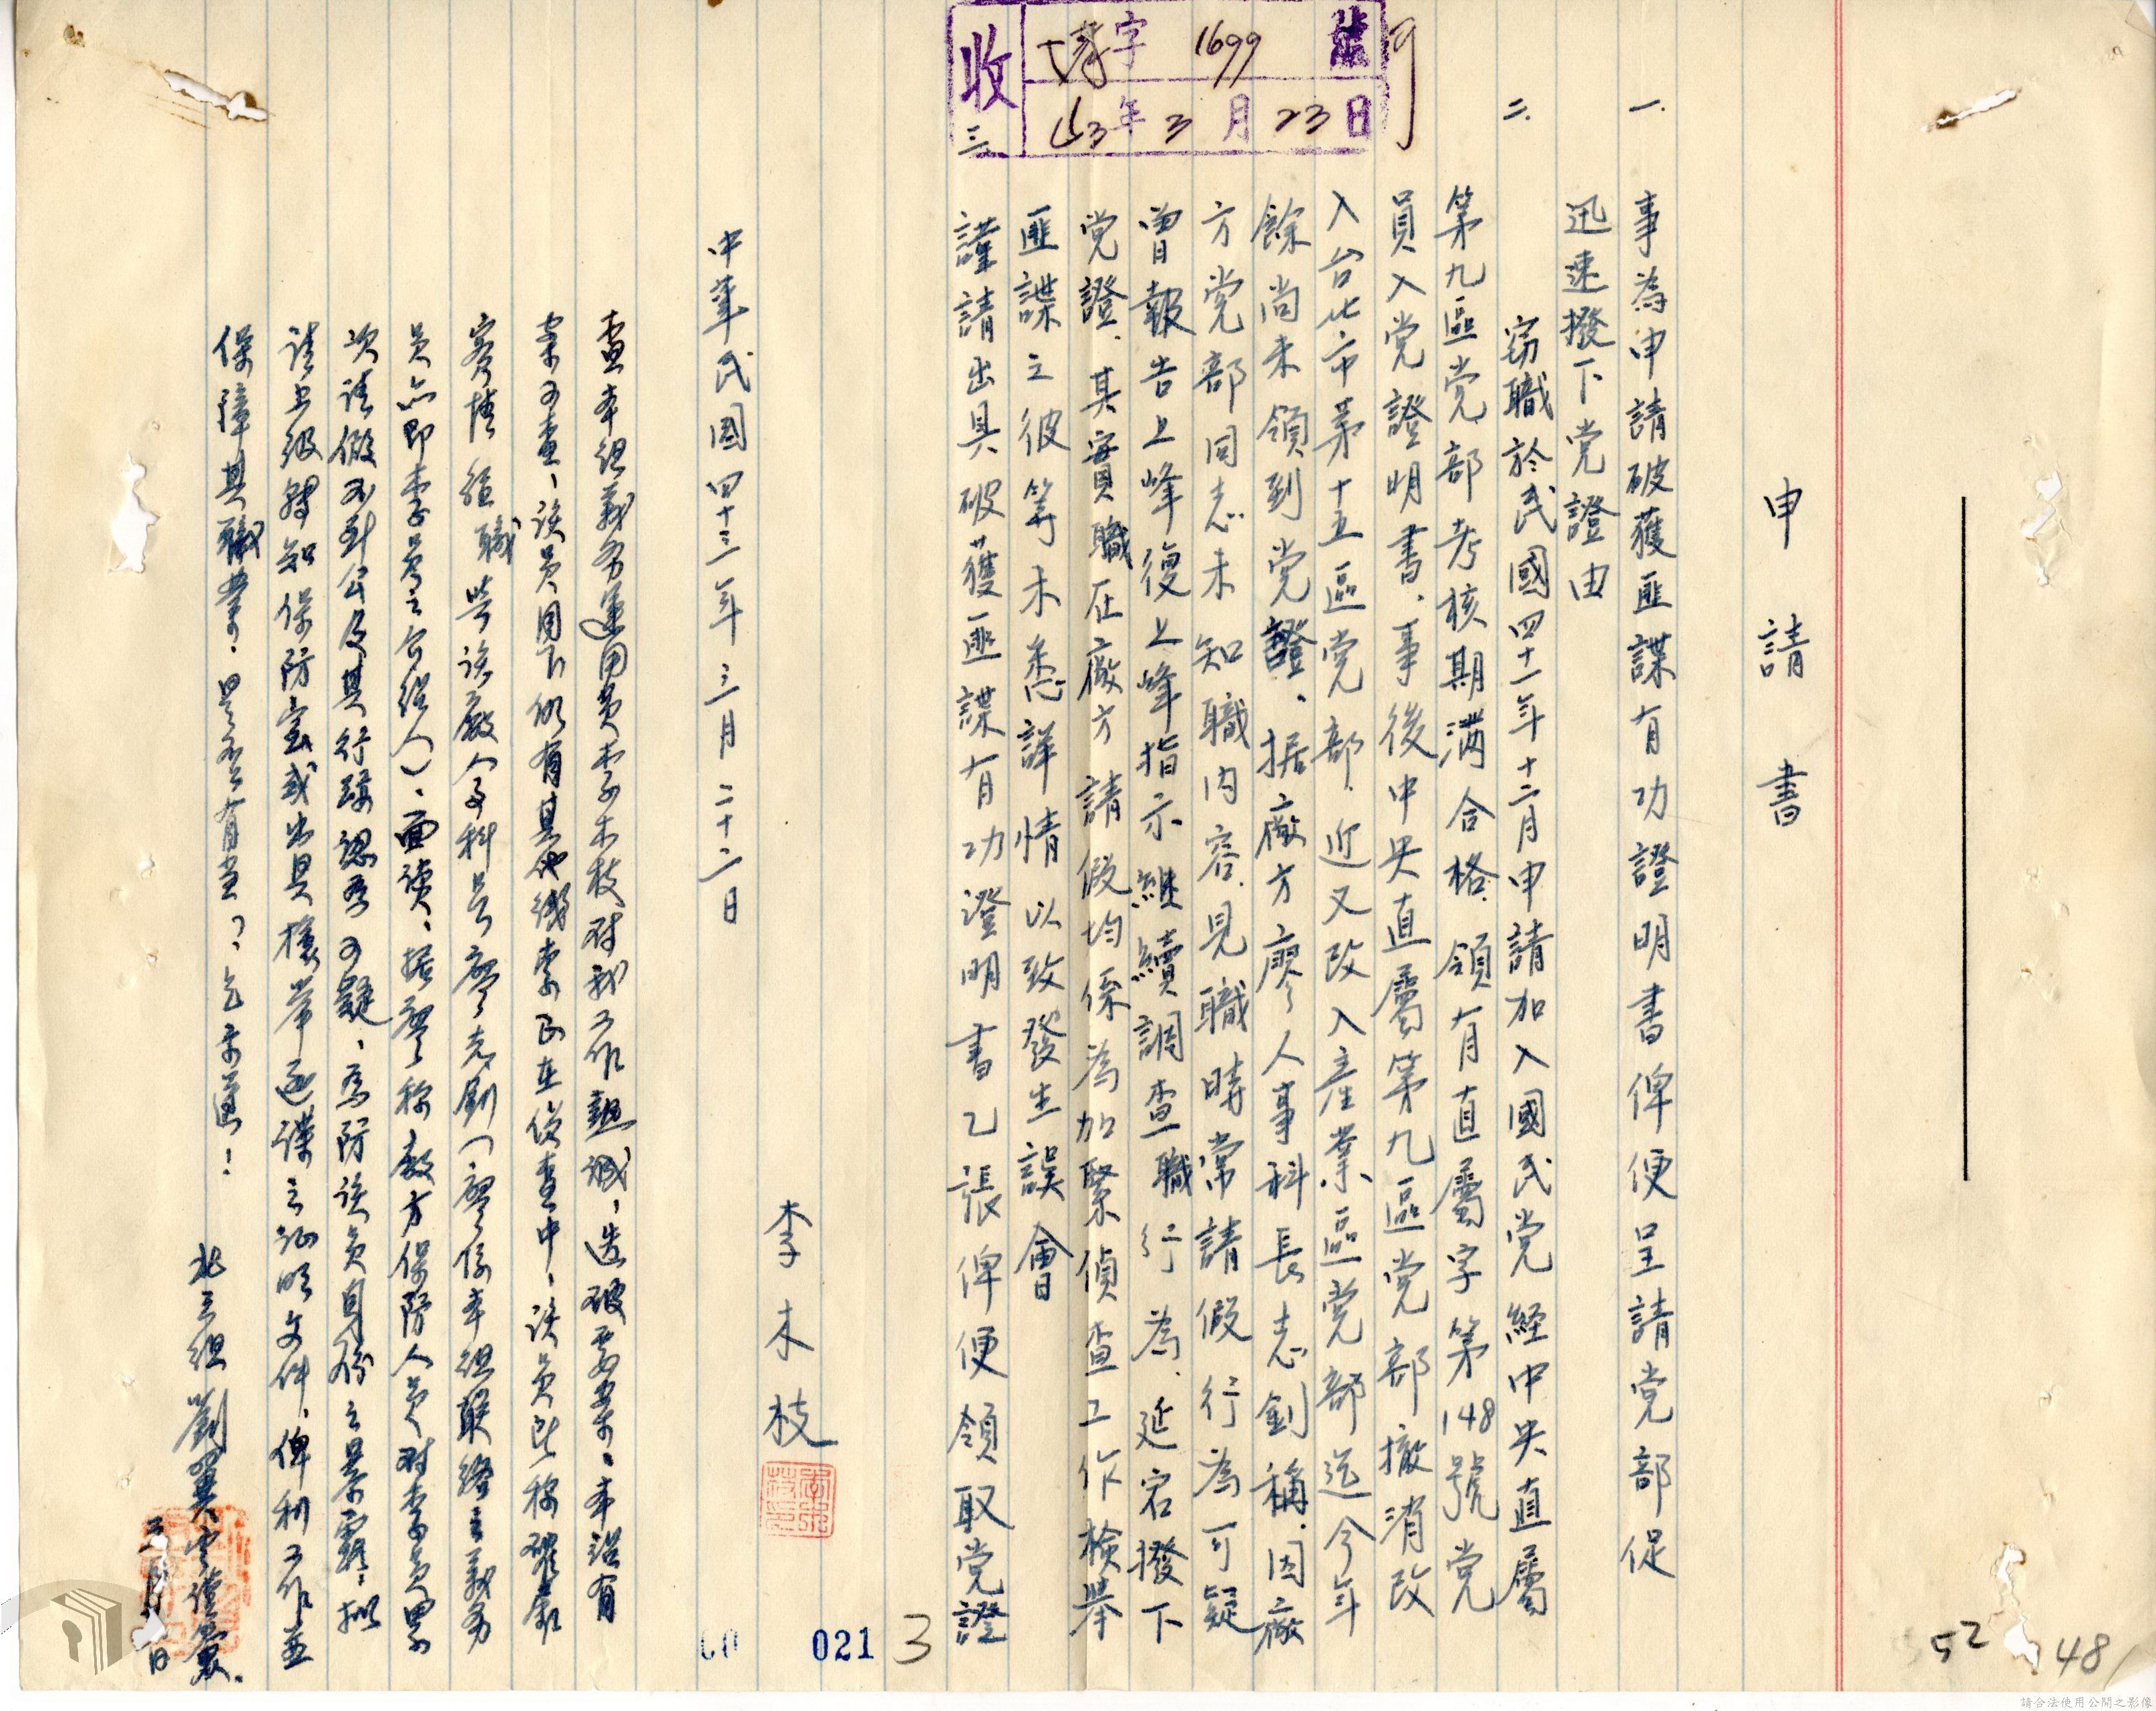 申請書
一. 事為申請破獲匪諜有功證明書俾便呈請党部促
迅速撥下党證由
二. 窃職於民國四十一年十二月申請加入國民党経中央直屬
第九區党部考核期满合格.領有直屬字第148號党
員入党證明書.事後中央直屬第九區党部撤消改
入台北市第十五區党部.近又改入産業區党部迄今年
餘尚未領到党證.据廠方廖人事科長志釗稱.因廠
方党部同志未知職内容.見職時常請假行為可疑
曾報告上峰復上峰指示継續調查職行為.延宕撥下
党證.其實職在廠方請假均係為加緊偵查工作檢舉
匪諜之彼等未悉詳情以致發生誤會
三. 謹請出具破獲匪諜有功證明書乙張俾便領取党證
李木枝
中華民國四十三年三月二十二日
查本組義务運用員李木枝对我工作熱誠、迭破要案、本沿有
案可查、該員目下仍有其他線索正在偵查中、該員所稱確屬
实情 經職與該廠人事科長廖志釗(廖係本組联络主義务
员亦即李员之介绍人)、面谈、据廖称廠方保防人员对李员累
次请假不到公及其行踪認為可疑、為防该员身份之暴露、拟
请上级轉知保防室或出具檢举匪諜之证明文件、俾利工作並
保障其職業、是否有當?、乞示遵!
北三组 劉翼 謹簽.
三月 日
收
字 1699 號
43年3月23日
021
3
52
48
請合法使用公開之影像